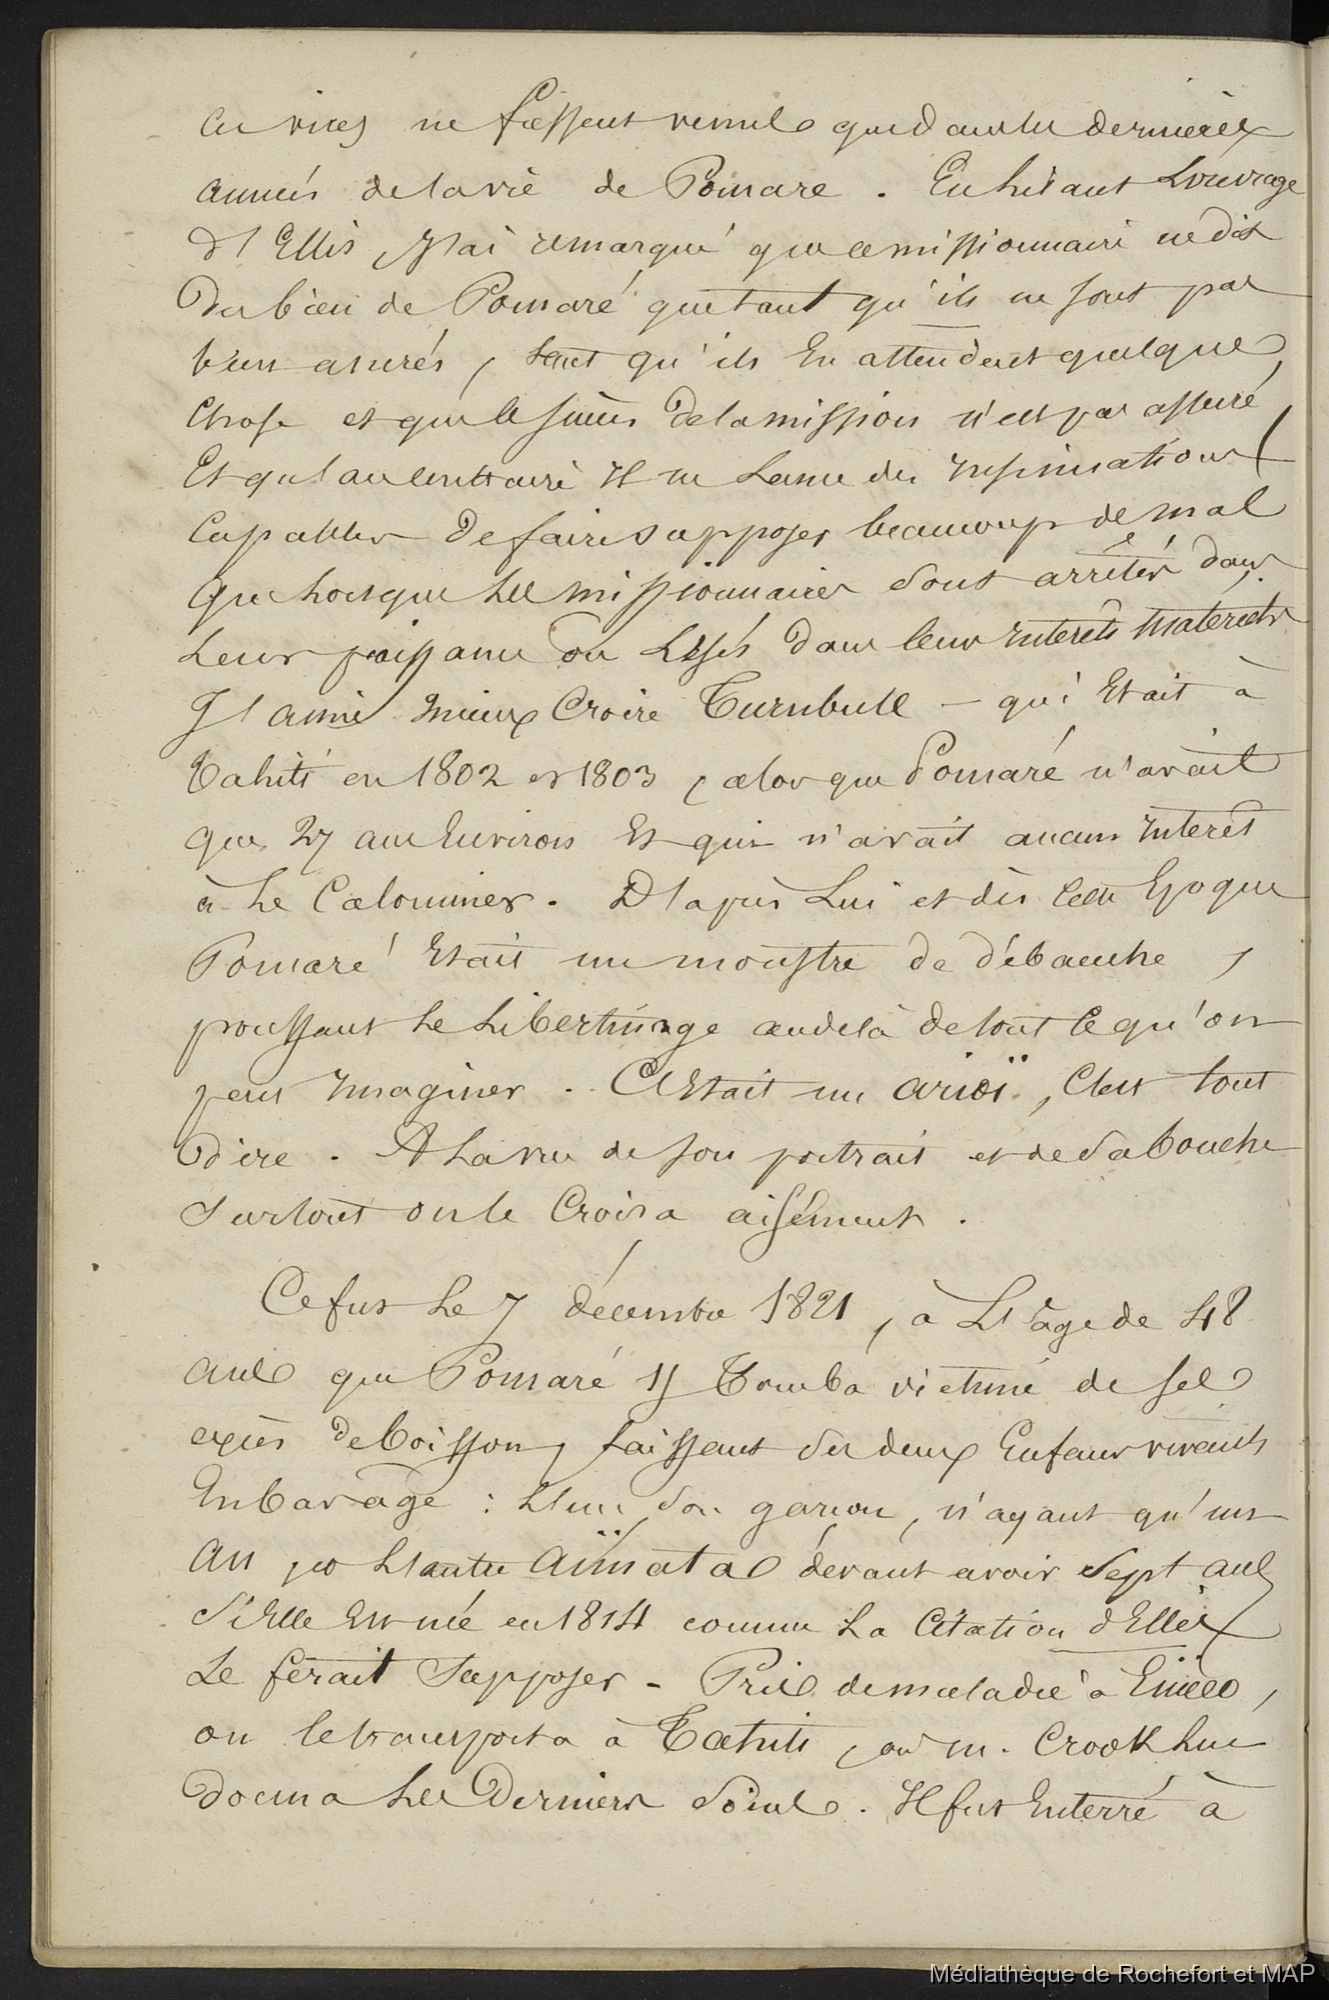 Ces vices ne fussent venus que dans les dernières
années de la vie de Pomare . En lisant L'ouvrage
d'Ellis, J'ai remarqué que ce missionnaire ne dit
du bien de Pomaré que tant qu'ils ne sont pas
bien assurés, tant qu'ils En attendent quelque
Chose et que le succès de la mission n'est pas assuré
Et qu'au contraire Il ne Lance des Insinuations
Capables de faire supposer beaucoup de mal
Que Lorsque Les missionnaires sont arrêtés dans
Leur puissance ou Lésés dans leurs Interêts materiels
J'aime mieux Croire Turnbull - qui Etait à
Tahiti en 1802 et 1803, alors que Pomaré n'avait
que 27 ans Environ Et qui n'avait aucun Interêt
à Le Calomnier . D'après Lui et dès cette Epoque
Pomaré Etait un monstre de débauche ,
poussant Le Libertinage au delà de tout ce qu'on
peut Imaginer . C'Etait un arioï , C'est tout
dire . A La vue de son portrait et de sa bouche
surtout on le Croira aisément .
Ce fut Le 7 décembre 1821 , à L'âge de 48
ans que Pomaré II Tomba victime de ses
excès de boisson, laissant ses deux Enfants vivants
En bas age : L'un, son garçon, n'ayant qu'un
An, L'autre Aïmata devant avoir sept ans
si Elle Est née en 1814 comme La Citation d'Ellis
Le ferait Supposer - Pris de maladie à Eiméo ,
on le transporta à Taïti , où m. Crook Lui
donna Les Derniers Soins . Il fut Enterré à
Médiathèque de Rochefort et MAP